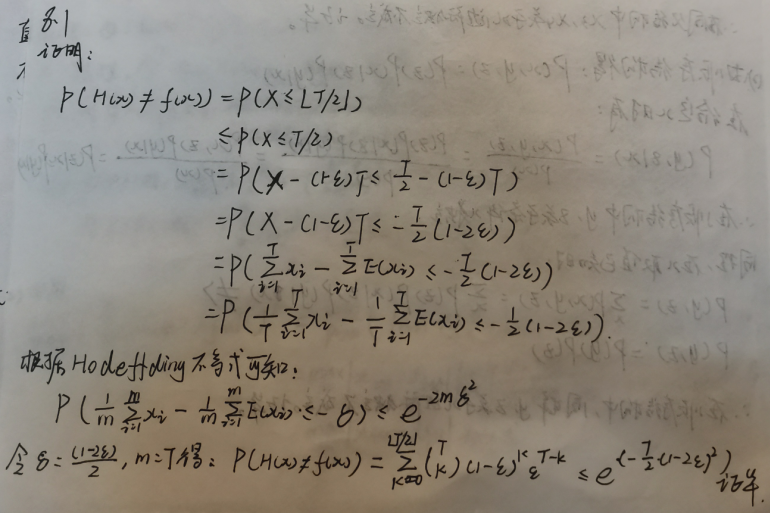 8.1
证明:
P(H(x)≠f(x)) = P(X≤⌊T/2⌋)
≤P(X≤T/2)
=P(X-(1-ε)T≤T/2-(1-ε)T)
=P(X-(1-ε)T≤-T/2(1-2ε))
=P(∑_{i=1}^{T} x_i - ∑_{i=1}^{T} E(x_i) ≤ -T/2(1-2ε))
=P(1/T ∑_{i=1}^{T} x_i - 1/T ∑_{i=1}^{T} E(x_i) ≤ -1/2(1-2ε)).
根据Hodeffding不等式可知:
P(1/m ∑_{i=1}^{m} x_i - 1/m ∑_{i=1}^{m} E(x_i) ≤ -δ) ≤ e^{-2mδ^2}
令δ=(1-2ε)/2, m=T得: P(H(x)≠f(x)) = ∑_{k=0}^{⌊T/2⌋} (T K)(1-ε)^K ε^{T-K} ≤ e^{(-T/2(1-2ε)^2)} 证毕.